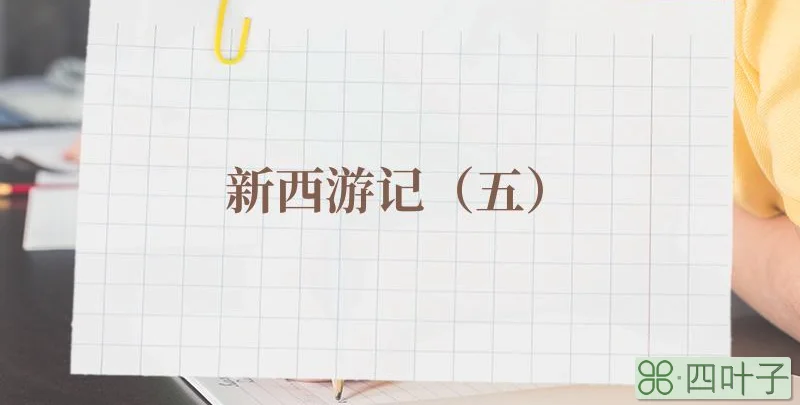 新西游记（五）
四叶子